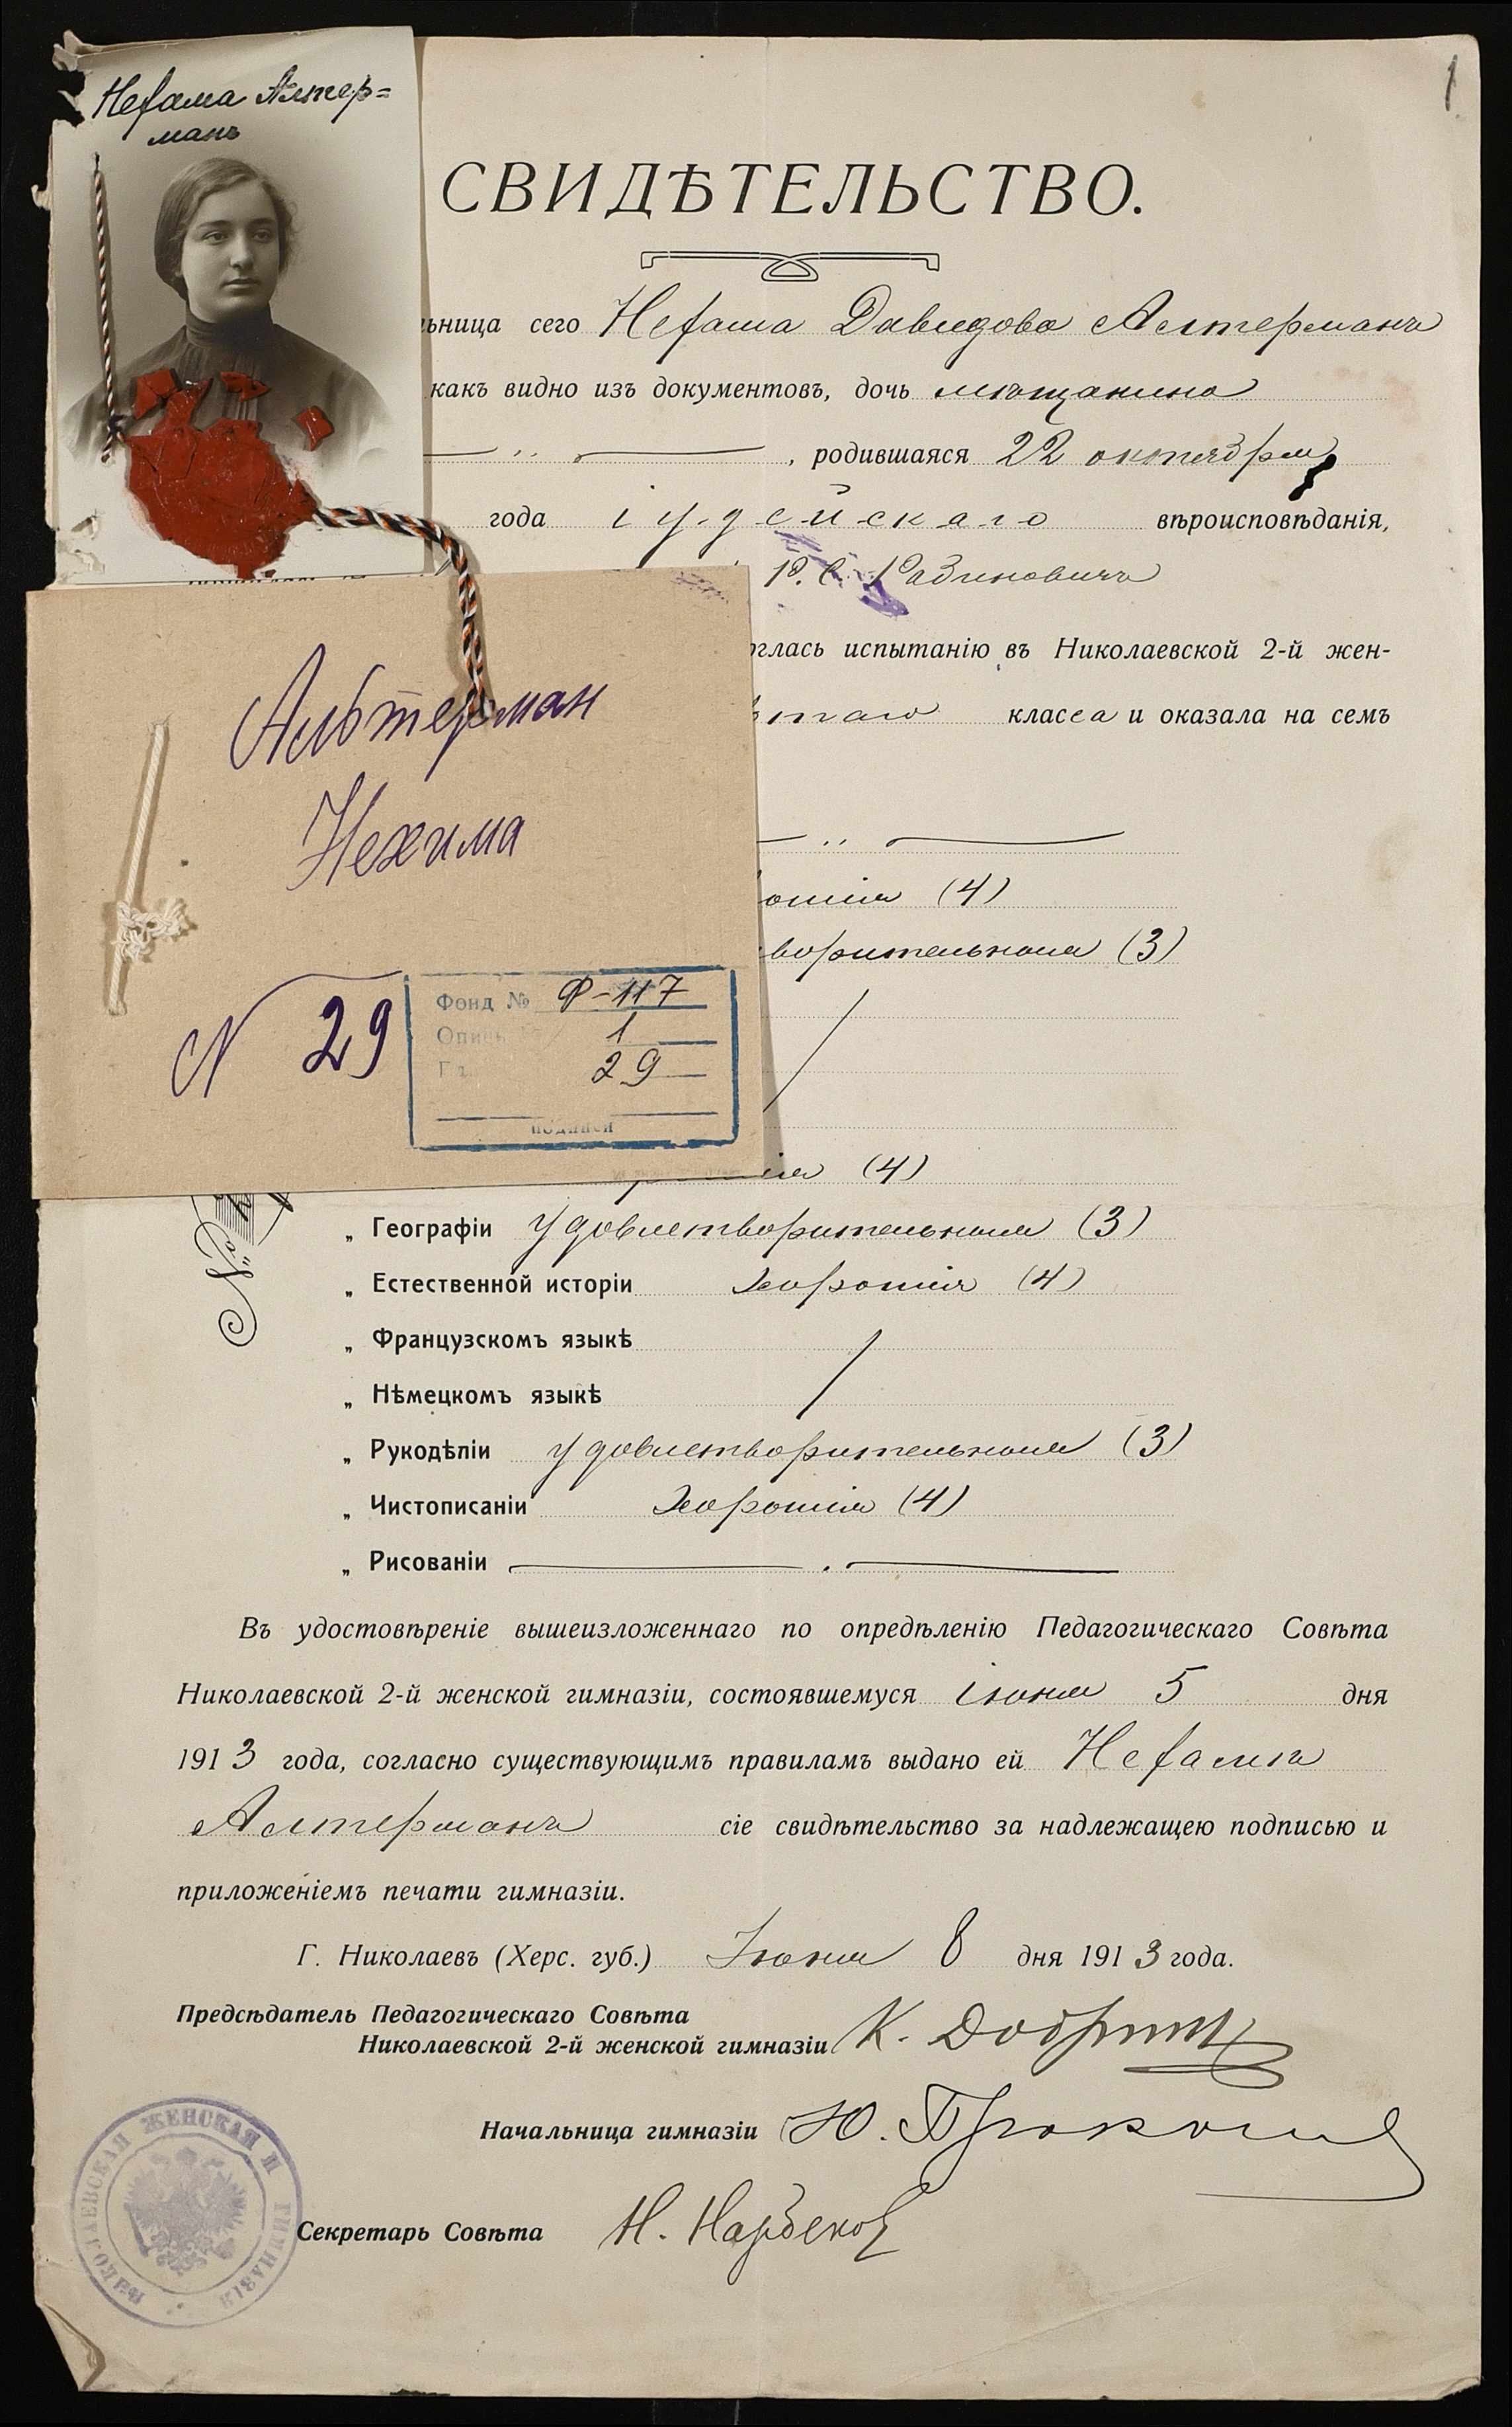 1
Нехама Алтер=
манъ
СВИДѢТЕЛЬСТВО.
ьница сего Нехама Давидова Алтерманъ
какъ видно изъ документовъ, дочь мѣщанина
, родившаяся 22 октября
года іудейскаго вѣроисповѣданія,
Р. С. Рабиновичъ
рглась испытанію въ Николаевской 2-й жен-
таго класса и оказала на семъ
Альтерман
Нехима
N 29
Фонд № Ф-117
Опись 1
29
подписи
ошія (4)
ворительныя (3)
ія (4)
„ Географіи удовлетворительныя (3)
„ Естественной исторіи хорошія (4)
„ Французскомъ языкѣ
„ Нѣмецкомъ языкѣ
„ Рукодѣліи удовлетворительныя (3)
„ Чистописаніи хорошія (4)
„ Рисованіи
Въ удостовѣреніе вышеизложеннаго по опредѣленію Педагогическаго Совѣта
Николаевской 2-й женской гимназіи, состоявшемуся іюня 5 дня
1913 года, согласно существующимъ правиламъ выдано ей Нехамѣ
Алтерманъ сіе свидѣтельство за надлежащею подписью и
приложеніемъ печати гимназіи.
Г. Николаевъ (Херс. губ.) Іюня 8 дня 1913 года.
Предсѣдатель Педагогическаго Совѣта
Николаевской 2-й женской гимназіи К.
Начальница гимназіи Ю.
Секретарь Совѣта Н. Нарбеков
НИКОЛАЕВСКАЯ ЖЕНСКАЯ II ГИМНАЗІЯ